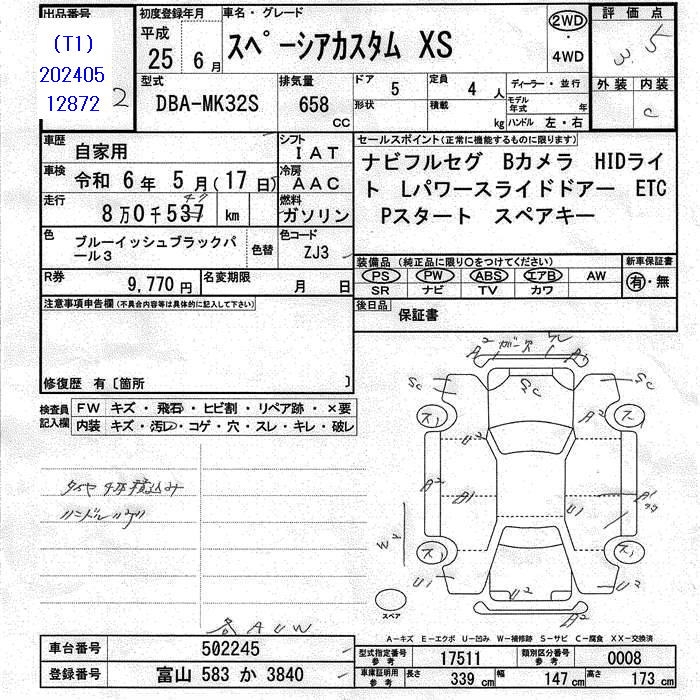 出品番号
(T1)
202405
12872
2
初度登録年月
平成
25 6月
車名・グレード
スペーシアカスタム XS
2WD
・
4WD
評価点
3.5
外装 内装
C
型式
DBA-MK32S
排気量
658
CC
ドア 5
形状
定員 4人
積載 kg
ディーラー・並行
モデル年式 年
ハンドル 左・右
車歴
自家用
シフト
IAT
車検
令和 6年 5月(17日)
冷房
AAC
走行
8万0千537
km
燃料
ガソリン
色
ブルーイッシュブラックパール3
色替
色コード
ZJ3
R券
9,770円
名変期限
月 日
セールスポイント(正常に機能するものに限ります)
ナビフルセグ Bカメラ HIDライ
ト Lパワースライドドアー ETC
Pスタート スペアキー
装備品(純正品に限り○をつけてください)
PS PW ABS エアB AW
SR ナビ TV カワ
新車保証書
有・無
後日品
保証書
注意事項申告欄(不具合内容等は具体的に記入して下さい)
修復歴 有〔箇所 〕
検査員記入欄
FW キズ・飛石・ヒビ割・リペア跡・×要
内装 キズ・汚レ・コゲ・穴・スレ・キレ・破レ
タイヤ 4本積込み
ハンドル
A2 ガー穴
SC SC SC
ス1 ス1
U2 A2
A2 A1 U1 A1
W
ス1 ス1
U1 U2 U2
A2
スペア
A U W
A-キズ E-エクボ U-凹み W-補修跡 S-サビ C-腐食 XX-交換済
車台番号 502245
登録番号 富山 583 か 3840
型式指定番号参考 17511 類別区分番号参考 0008
車庫証明用参考 長さ 339cm 幅 147cm 高さ 173cm